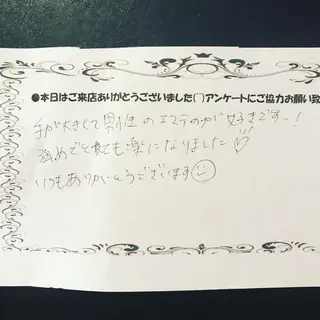 ●本日はご来店ありがとうございました(¨)アンケートにご協力お願い致
手が大きくて男性のエステの方が好きです~!
強めでとても楽になりました♡
いつもありがとうございます☺